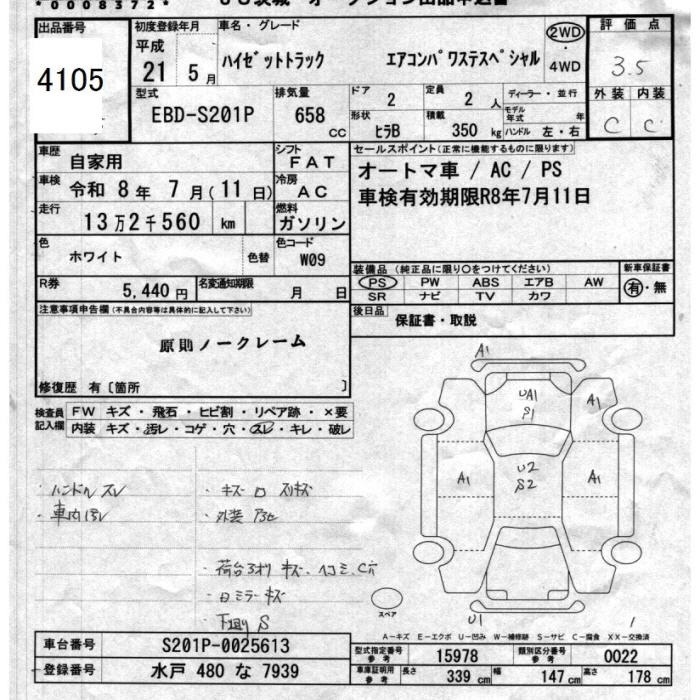 *0008372*
出品番号
4105
初度登録年月
平成
21年 5月
車名・グレード
ハイゼットトラック エアコンパワステスペシャル
2WD
4WD
評価点
3.5
外装 内装
C C
型式
EBD-S201P
排気量
658 CC
ドア
2
定員
2人
形状
ヒラB
積載
350 kg
ディーラー・並行
モデル年式 年
ハンドル 左・右
車歴
自家用
シフト
FAT
車検 令和 8年 7月(11日)
冷房
AC
走行
13万2千560 km
燃料
ガソリン
色
ホワイト 色替
色コード
W09
セールスポイント(正常に機能するものに限ります)
オートマ車 / AC / PS
車検有効期限R8年7月11日
装備品 (純正品に限り〇をつけてください)
PS PW ABS エアB AW
SR ナビ TV カワ
新車保証書
有・無
R券 5,440円
名変通知期限 月 日
後日品 保証書・取説
注意事項申告欄(不具合内容等は具体的に記入して下さい)
原則ノークレーム
修復歴 有〔箇所 〕
検査員記入欄
FW キズ・飛石・ヒビ割・リペア跡・×要
内装 キズ・汚レ・コゲ・穴・スレ・キレ・破レ
・ハンドルスレ
・車内汚レ
・キズ
・外装
・荷台3方 キズ、ヘコミ、
・ミラーキズ
・下廻りS
A1
UA1
S1
A1
U2
S2
A1
A1
U1
スペア
A-キズ E-エクボ U-凹み W-補修跡 S-サビ C-腐食 XX-交換済
車台番号 S201P-0025613
登録番号 水戸 480 な 7939
型式指定番号 参考 15978
類別区分番号 参考 0022
車庫証明用 参考 長さ 339 cm 幅 147 cm 高さ 178 cm